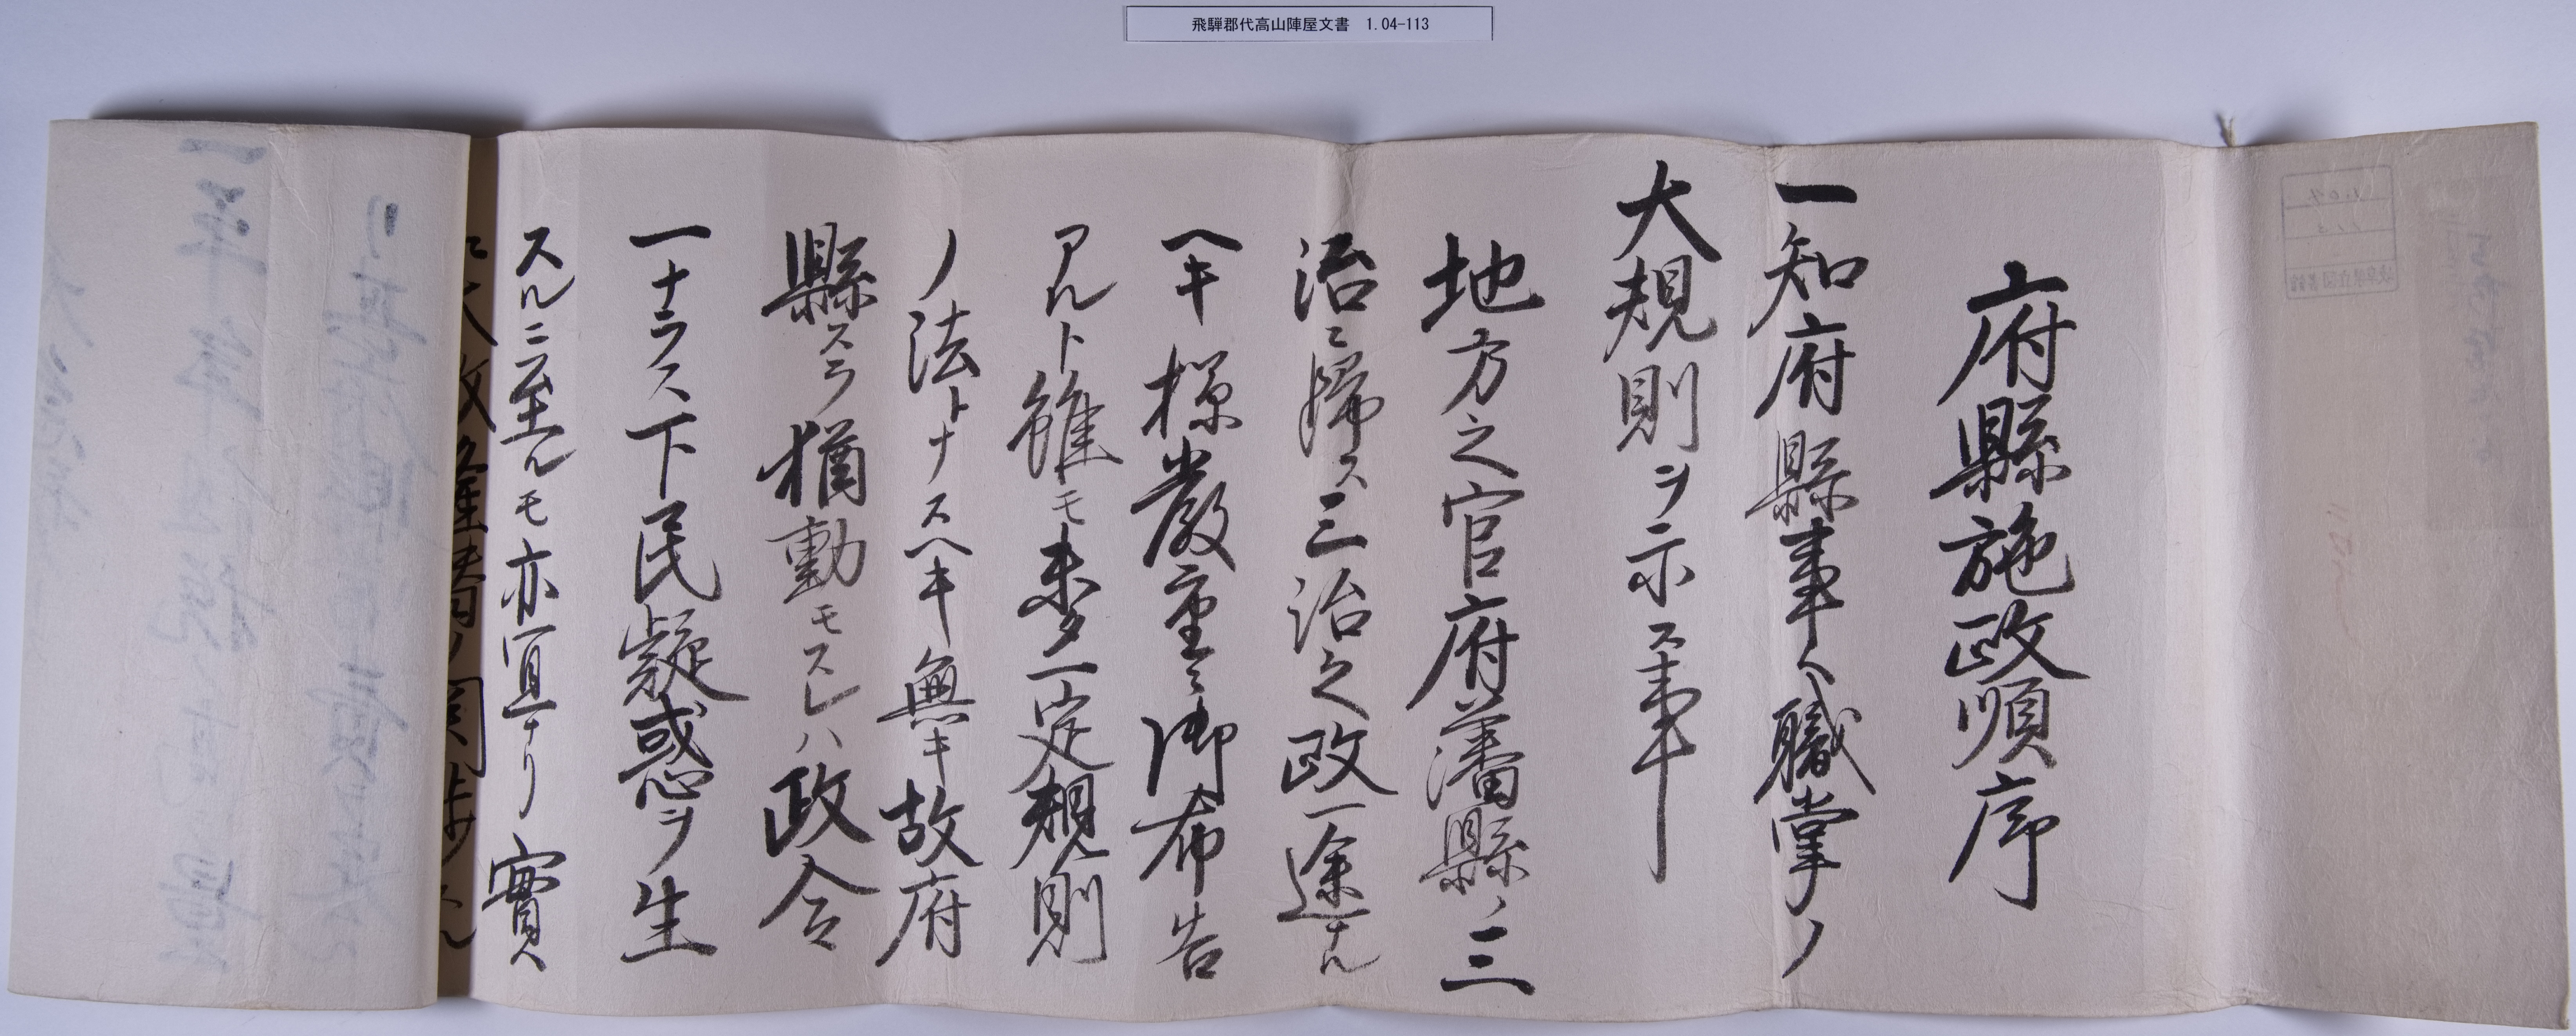 飛騨郡代高山陣屋文書　1.04-113
府縣施政順序
一知府縣事ヘ職掌ノ
大規則ヲ示ス事
地方之官府藩縣ノ三
治ニ歸ス三治之政一途ナル
ヘキ樣嚴重ニ御布告
アルト雖モ未タ一定規則
ノ法トナスヘキ無キ故府
縣スラ猶動モスレハ政令
一ナラス下民疑惑ヲ生
スルニ至ルモ亦宜ナリ實